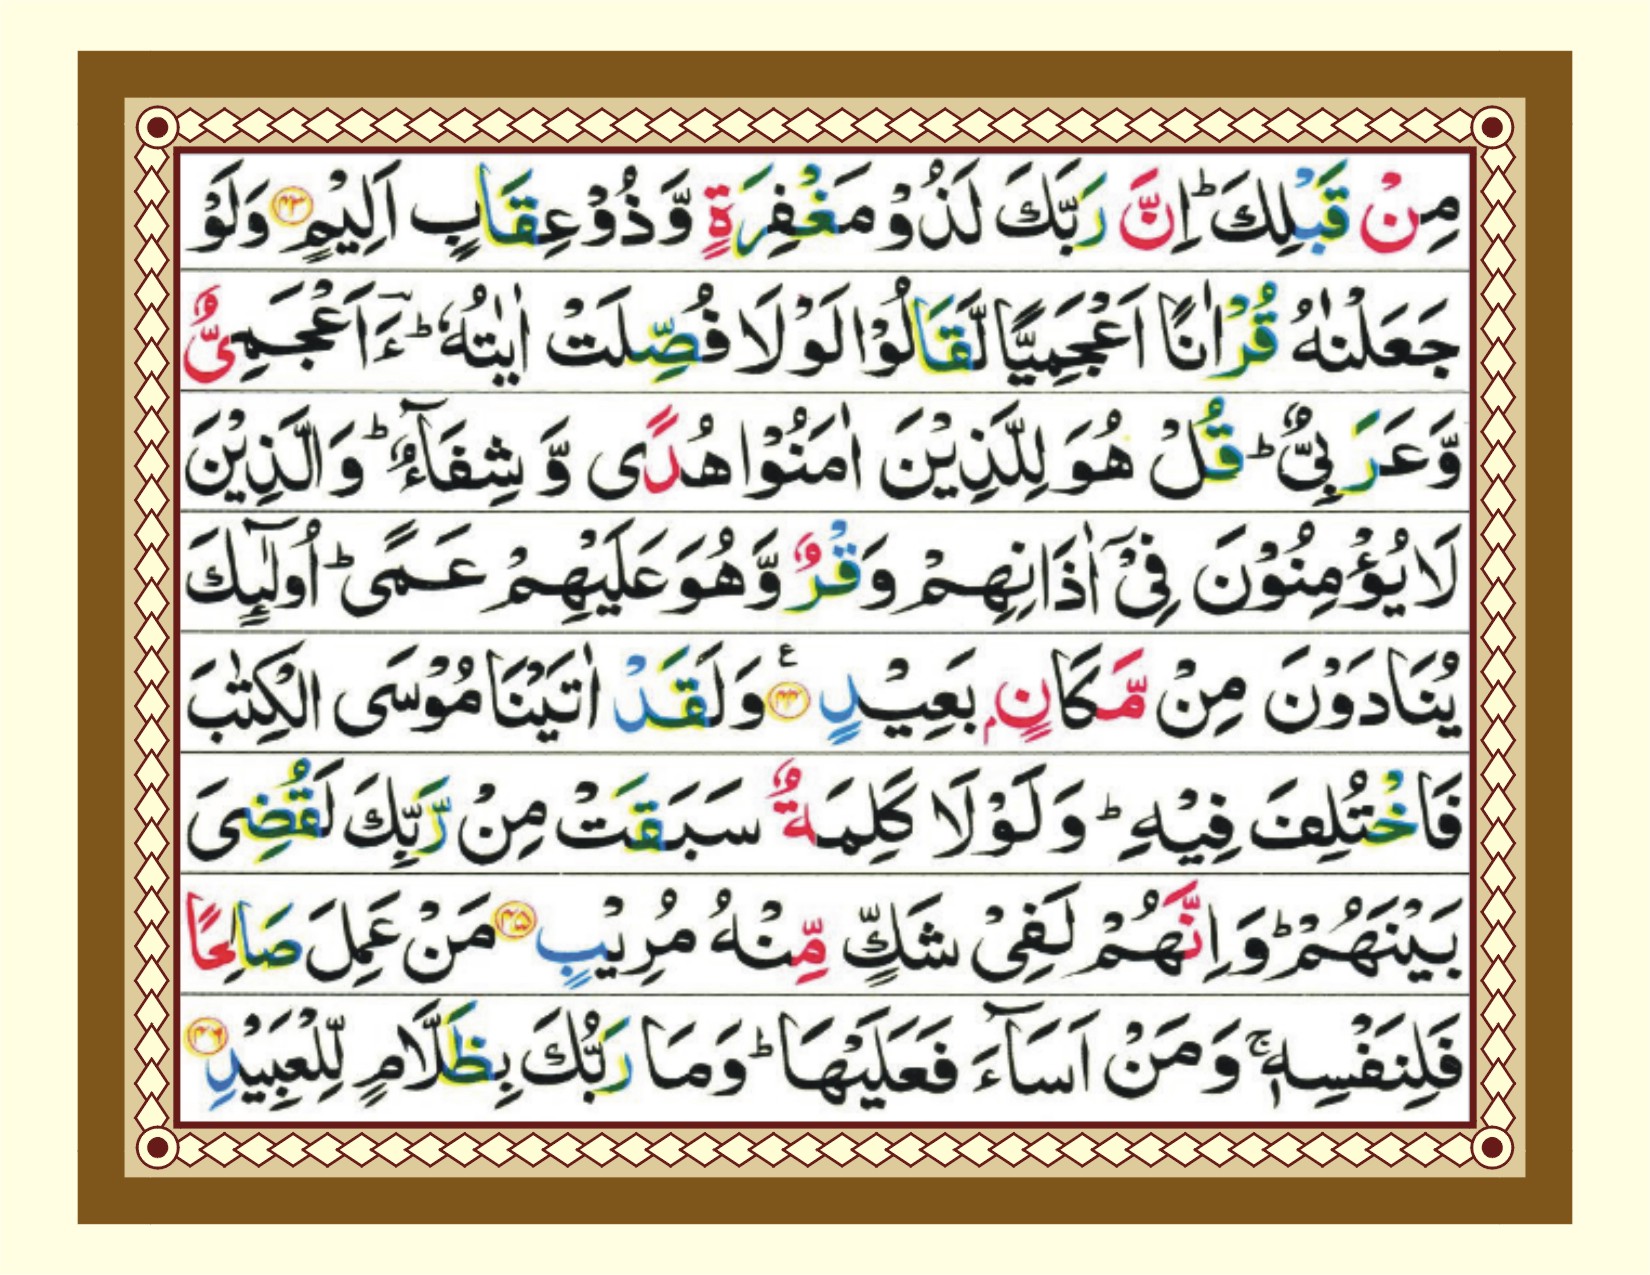 مِنْ قَبْلِكَ ؕ اِنَّ رَبَّكَ لَذُوْ مَغْفِرَةٍ وَّ ذُوْ عِقَابٍ اَلِيْمٍ ۴۳ وَلَوْ
جَعَلْنٰهُ قُرْاٰنًا اَعْجَمِيًّا لَّقَالُوْا لَوْلَا فُصِّلَتْ اٰيٰتُهٗ ؕ ءَاَعْجَمِىٌّ
وَّعَرَبِىٌّ ؕ قُلْ هُوَ لِلَّذِيْنَ اٰمَنُوْا هُدًى وَّ شِفَآءٌ ؕ وَالَّذِيْنَ
لَا يُؤْمِنُوْنَ فِىْٓ اٰذَانِهِمْ وَقْرٌ وَّهُوَ عَلَيْهِمْ عَمًى ؕ اُولٰٓئِكَ
يُنَادَوْنَ مِنْ مَّكَانٍۭ بَعِيْدٍ ۴۴ ع وَلَقَدْ اٰتَيْنَا مُوْسَى الْكِتٰبَ
فَاخْتُلِفَ فِيْهِ ؕ وَلَوْلَا كَلِمَةٌ سَبَقَتْ مِنْ رَّبِّكَ لَقُضِىَ
بَيْنَهُمْ ؕ وَاِنَّهُمْ لَفِىْ شَكٍّ مِّنْهُ مُرِيْبٍ ۴۵ مَنْ عَمِلَ صَالِحًا
فَلِنَفْسِهٖ ۚ وَمَنْ اَسَآءَ فَعَلَيْهَا ؕ وَمَا رَبُّكَ بِظَلَّامٍ لِّلْعَبِيْدِ ۴۶